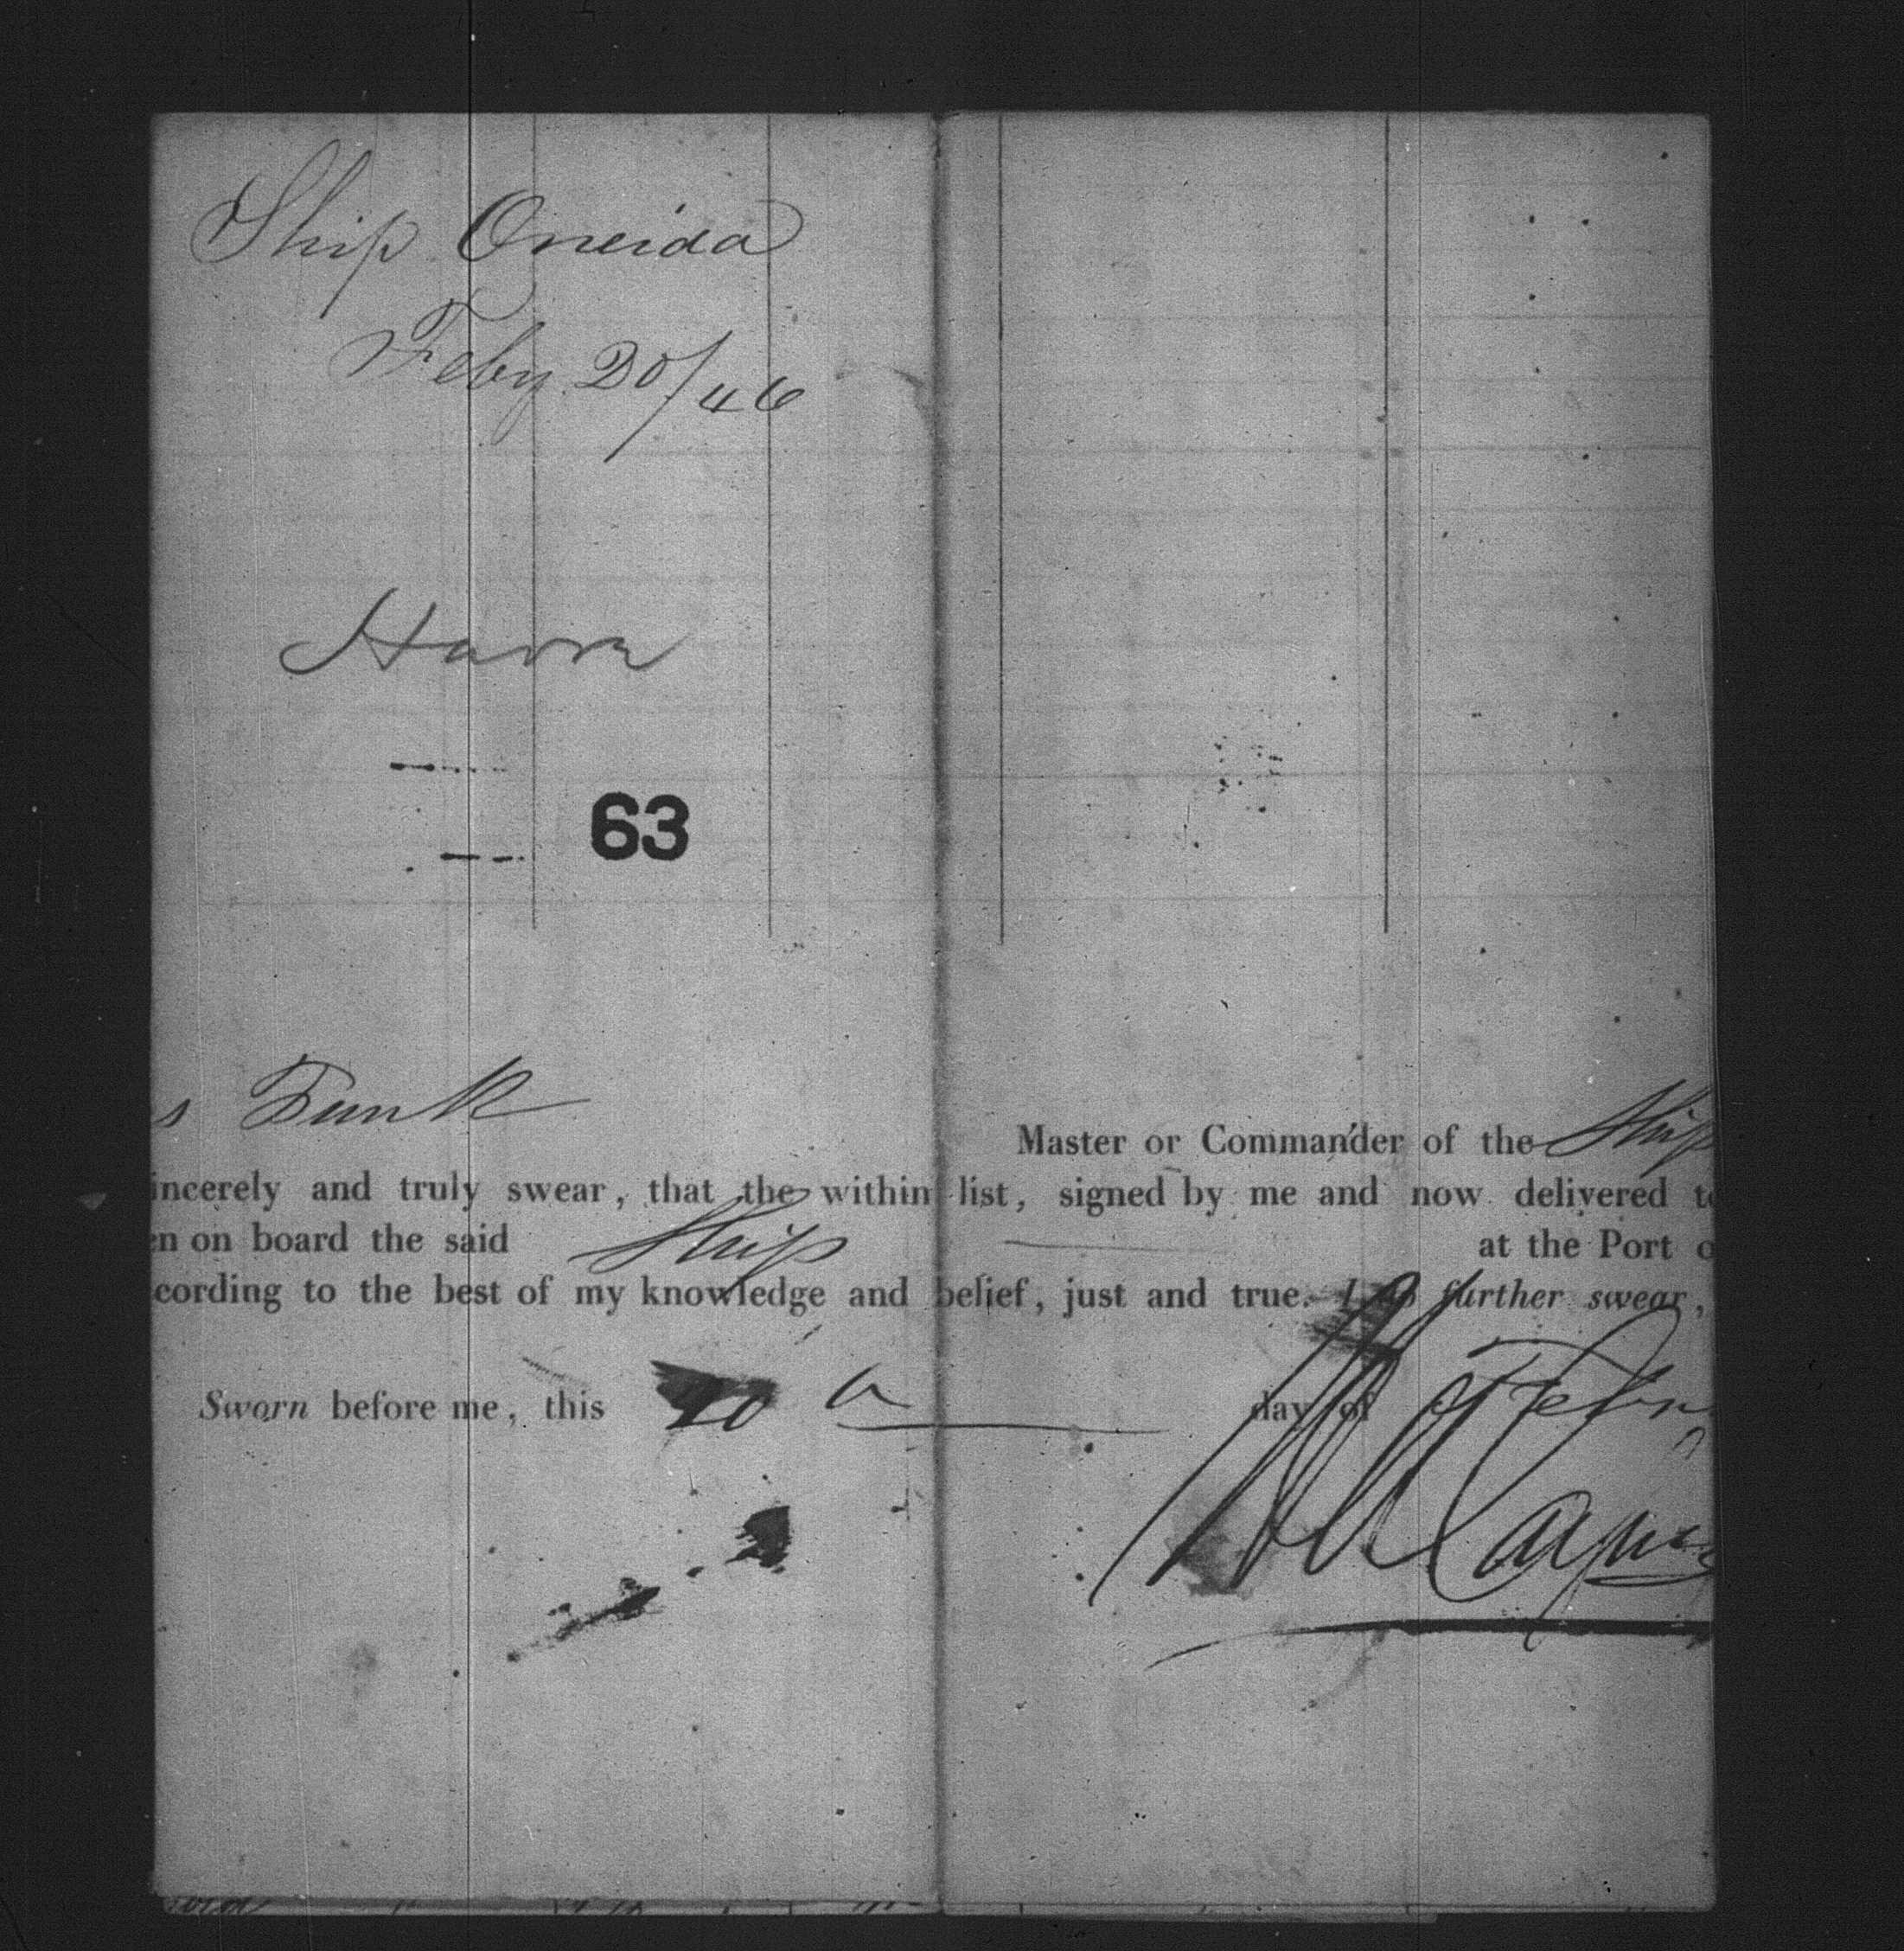 Ship Oneida
Feby 20/46
Havre
63
s Funk
Master or Commander of the Ship
incerely and truly swear, that the within list, signed by me and now delivered to
en on board the said Ship at the Port o
cording to the best of my knowledge and belief, just and true. I do further swear,
Sworn before me, this 20 day of Febr